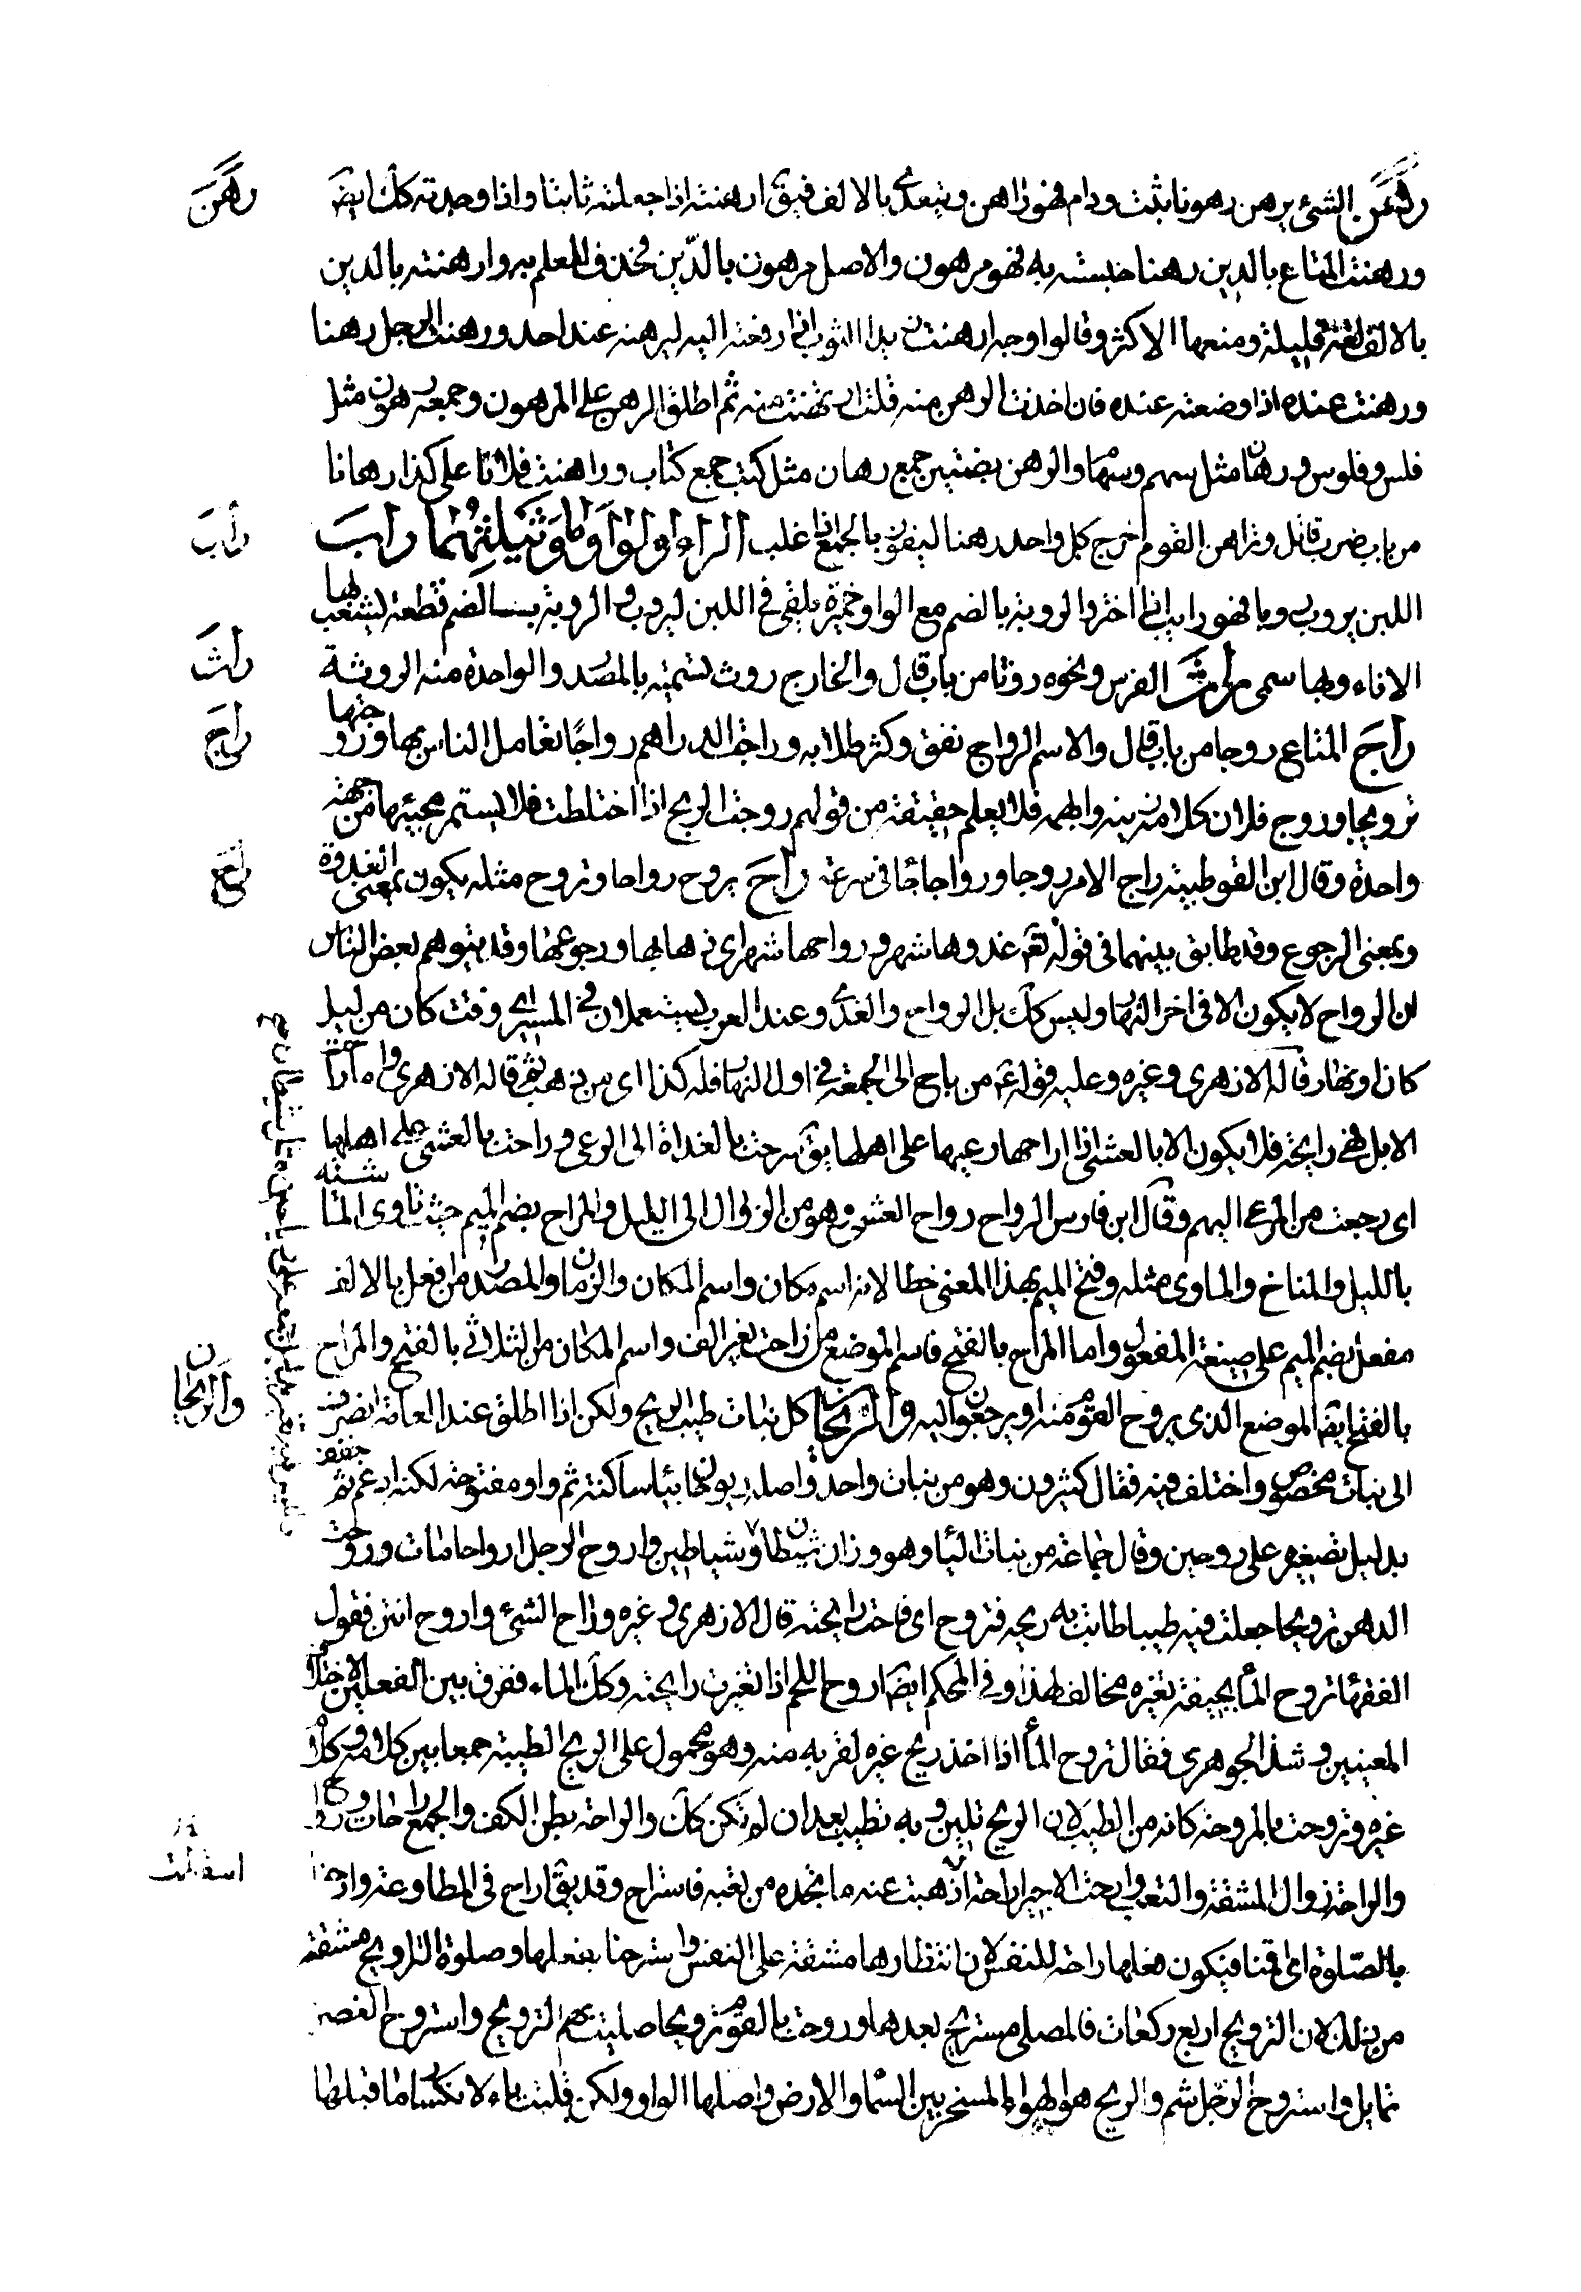 رهن
رَهَن الشئ يرهن رهونا ثبت ودام فهو راهن ويتعدى بالالف فيق ارهنته اذا جعلته ثابتا واذا وجدته كك ايضا
ورهنت المتاع بالدين رهنا حبسته به فهو مرهون والاصل مرهون بالدّين فحذف للعلم به وارهنته بالدين
بالالف لغة قليلة ومنعها الاكثر وقالوا وجه ارهنت زيدا الثوب اذا دفعته اليه ليرهنه عند احد ورهنت الرجل رهنا
ورهنت عنده اذا وضعته عنده فان اخذت الرهن منه قلت ارتهنت منه ثم اطلق الرهن على المرهون وجمعه رهون مثل
فلس وفلوس ورهان مثل سهم وسهام والرهن بضمتين جمع رهان مثل كتب جمع كتاب وراهنت فلانا على كذا رهانا
من باب قاتل وتراهن القوم اخرج كل واحد رهنا ليفوز بالجميع اذا غلب الراء والواو وما يثلثهما راب
راب
اللبن يروب روبا فهو رايب اذا خثر والروبة بالضم مع الواو خميرة يلقى في اللبن ليروب والروبة بالضم قطعة ليشعب بها
راث
الاناء وبها سمى راث الفرس ونحوه روثا من باب قال والخارج روث تسمية بالمصدر والواحدة منه الروثة
راج
راجَ المتاع روجا من باب قال والاسم الرواج نفق وكثر طلابه وراجت الدراهم رواجًا تعامل الناس بها وروجتها
ترويجا وروج فلان كلامه زينه وابهمه فلا يعلم حقيقته من قولهم روجت الريح اذا اختلطت فلا يستمر مجيئها من جهة
راح
واحدة وقال ابن القوطية راج الامر روجا ورواجا جاء في سرعة راحَ يروح رواحا وتروح مثله يكون بمعنى الغدو
وبمعنى الرجوع وقد طابق بينهما في قوله تعم غدوها شهر ورواحها شهر اى ذهابها ورجوعها وقد يتوهم بعض الناس
ان الرواح لا يكون الا في اخر النهار وليس كك بل الرواح والغدو عند العرب يستعملان في المسير اى وقت كان من ليل
كان او نهار قاله الازهرى وغيره وعليه قوله عم من راح الى الجمعة في اول النهار فله كذا اى من ذهب ثم قال الازهرى واما راحت
الابل فهى رايحة فلا يكون الا بالعشى اذا اراحها راعيها على اهلها يق سرحت بالغداة الى الرعى وراحت بالعشى على اهلها
اى رجعت من المرعى اليهم وقال ابن فارس الرواح رواح العشى وهو من الزوال الى الليل والمراح بضم الميم حيث تاوى الماشية
بالليل والمناخ والماوى مثله وفتح الميم بهذا المعنى خطا لانه اسم مكان واسم المكان والزمان والمصدر من افعل بالالف
مفعل بضم الميم على صيغة المفعول واما المراح بالفتح فاسم الموضع من راحت بغير الف واسم المكان من الثلاثى بالفتح والمراح
والريحان
بالفتح ايضا الموضع الذى يروح القوم منه او يرجعون اليه والريحان كل نبات طيب الريح ولكن اذا اطلق عند العامة انصرف
الى نبات مخصوص واختلف فيه فقال كثيرون وهو من بنات واحد واصله ريوحان بياء ساكنة ثم واو مفتوحة لكنه ادغم ثم خفف
بدليل تصغيره على رويحين وقال جماعة من بنات الياء وهو وزان شيطان وشياطين واروح الرجل ارواحا مات وروحت
الدهن ترويحا جعلت فيه طيبا طابت به ريحه فتروح اى فاحت رايحته قال الازهرى وغيره وراح الشئ واروح انتن فقول
الفقهاء تروح الماء بجيفة تغيره مخالف لهذا وفى المحكم ايضا اروح اللحم اذا تغيرت رايحته وكك الماء ففرق بين الفعلين لاختلاف
المعنيين وشذ الجوهرى فقال تروح الماء اذا اخذ ريح غيره لقربه منه وهو محمول على الريح الطيبة جمعا بين كلامه وكلام
غيره وتروحت بالمروحة كانه من الطيب لان الريح تلين وبه تطيب بعد ان لم تكن كك والراحة بطن الكف والجمع راحات وراح
والراحة زوال المشقة والتعب وارحت الاجير اراحة اذهبت عنه ما يجده من تعبه فاستراح وقد يق اراح في المطاوعة وارحنا
بالصّلوة اى اقمنا فيكون فعلها راحة للنفس لان انتظارها مشقة على النفس واسترحنا بفعلها وصلوة التراويح مشتقة
من ذلك لان الترويح اربع ركعات فالمصلى مستريح بعدها وروحت بالقوم ترويحا صليت بهم التراويح واستروح الغصن
تمايل واستروح الرجل شم والريح هو الهواء المسخر بين السماء والارض واصلها الواو ولكن قلبت ياء لانكسار ما قبلها